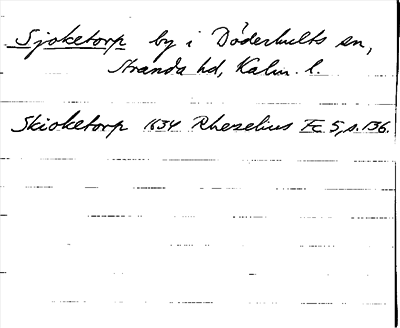 Sjoketorp by i Döderhults sn,
Stranda hd, Kalm. l.
Skioketorp 1634 Rhezelius Fc 5, s. 136.